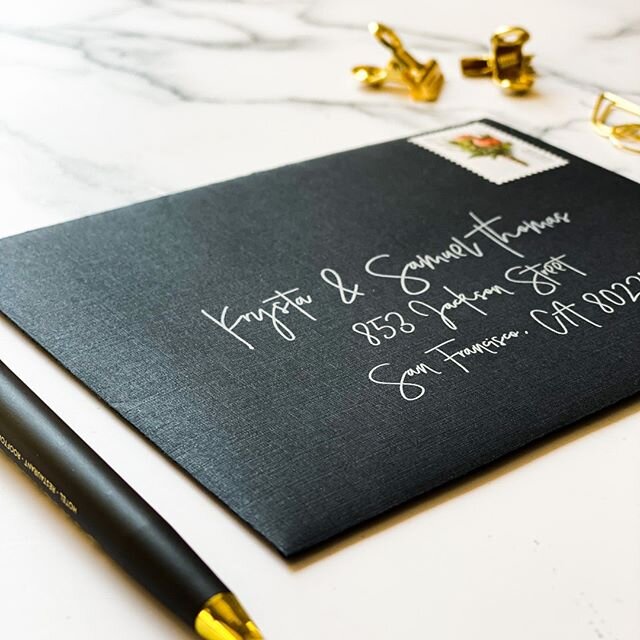 Krysta & Samuel Thomas
853 Jackson Street
San Francisco, CA 8022
HOTEL - RESTAURANT - ROOFTO